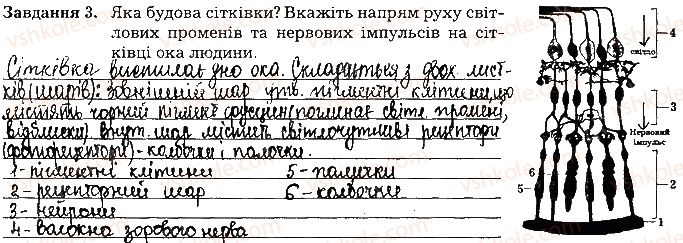 Завдання 3. Яка будова сітківки? Вкажіть напрям руху світ-
лових променів та нервових імпульсів на сіт-
ківці ока людини.
Сітківка вистилає дно ока. Складається з двох лист-
ків (шарів): зовнішній шар утв. пігментні клітини, що
містять чорний пігмент фусцин (поглинає світл. промені,
відблиски). внут. шар містить світлочутливі рецептори
(фоторецептори) - колбочки і палочки.
1 - пігментні клітини 5 - палички
2 - рецепторний шар 6 - колбочки
3 - нейрони
4 - волокна зорового нерва
4
світло
3
Нервовий
імпульс
2
5
6
1